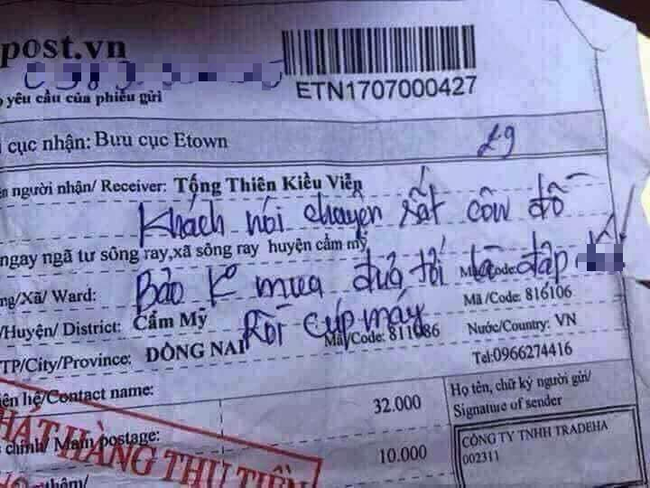 post.vn
ETN1707000427
yêu cầu của phiếu gửi
cục nhận: Bưu cục Etown
29
người nhận/ Receiver: Tống Thiên Kiều Viễn
Khách nói chuyện rất côn đồ
ngay ngã tư sông ray,xã sông ray huyện cẩm mỹ
Bảo k mua đứa tới là đập
Mã/Code:
ng/Xã/ Ward:
Mã /Code: 816106
Rồi cúp máy
/Huyện/ District: Cẩm Mỹ
Mã/Code: 811086
Nước/Country: VN
TP/City/Province: ĐỒNG NAI
Tel:0966274416
iên hệ/Contact name:
32.000
Họ tên, chữ ký người gửi/
Signature of sender
PHÁT HÀNG THU TIỀN
chính/ Main postage:
10.000
CÔNG TY TNHH TRADEHA
002311